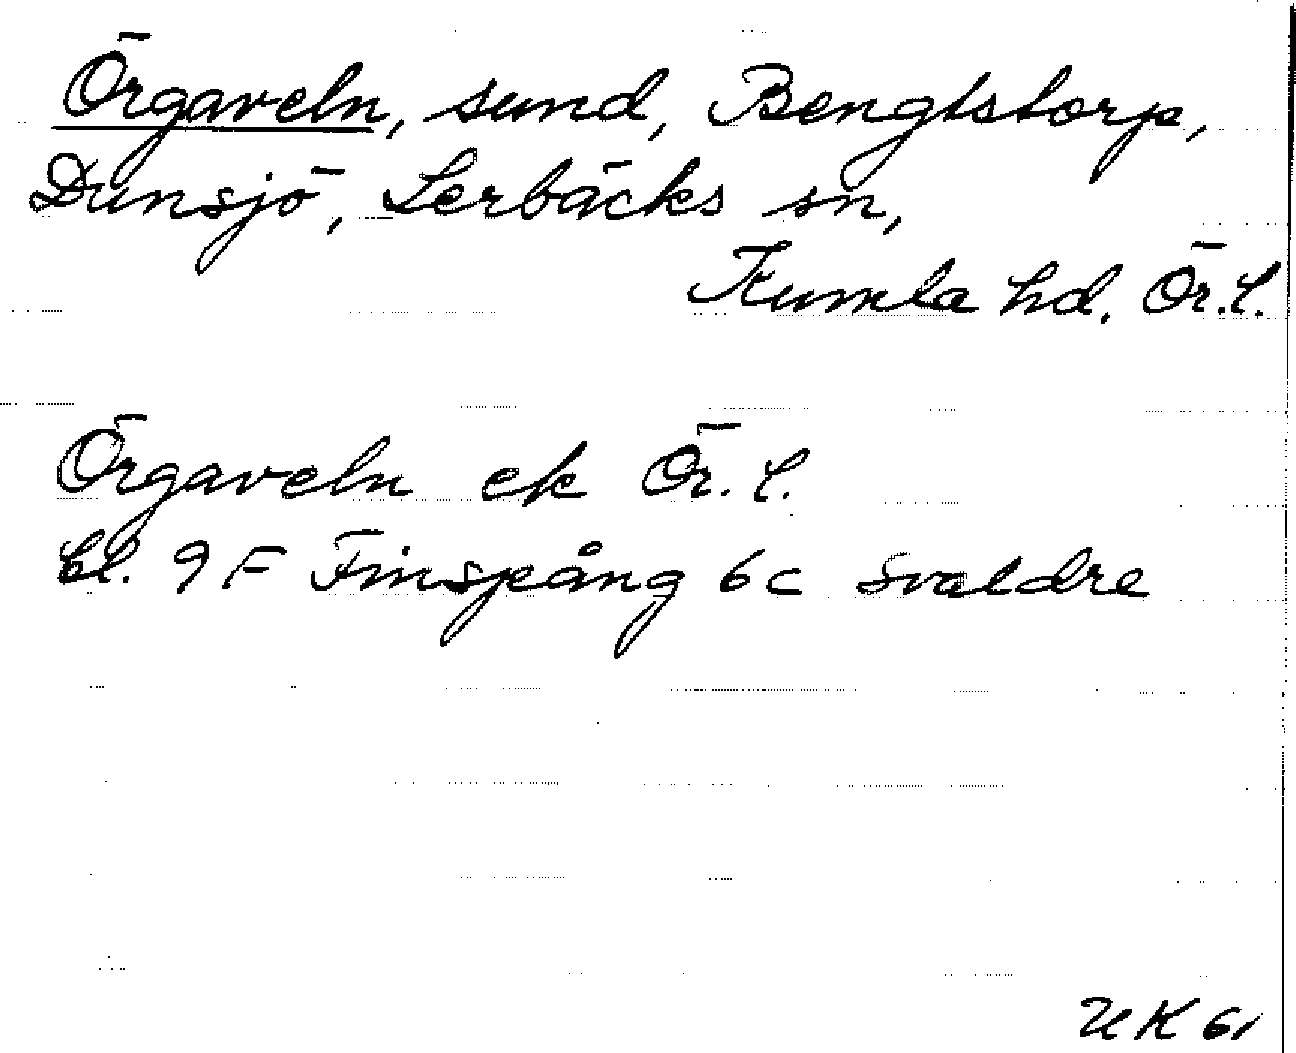 Örgaveln, sund, Bengtstorp,
Dunsjö, Lerbäcks sn,
Kumla hd. Ör.l.
Örgaveln ek Ör.l.
bl. 9F Finspång 6c Svaldre
UK 61